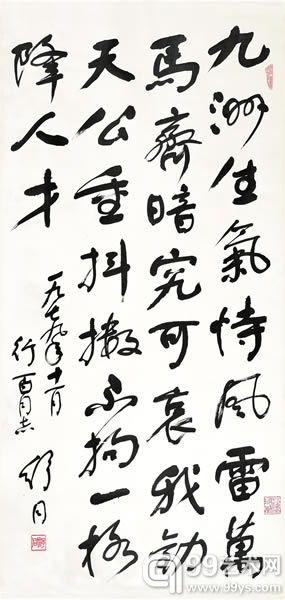 九洲生氣恃风雷萬
馬齊暗究可哀我勸
天公重抖擻不拘一格
降人才
一九七九年十一月
行百同志 舒同
99艺术网
www.99ys.com